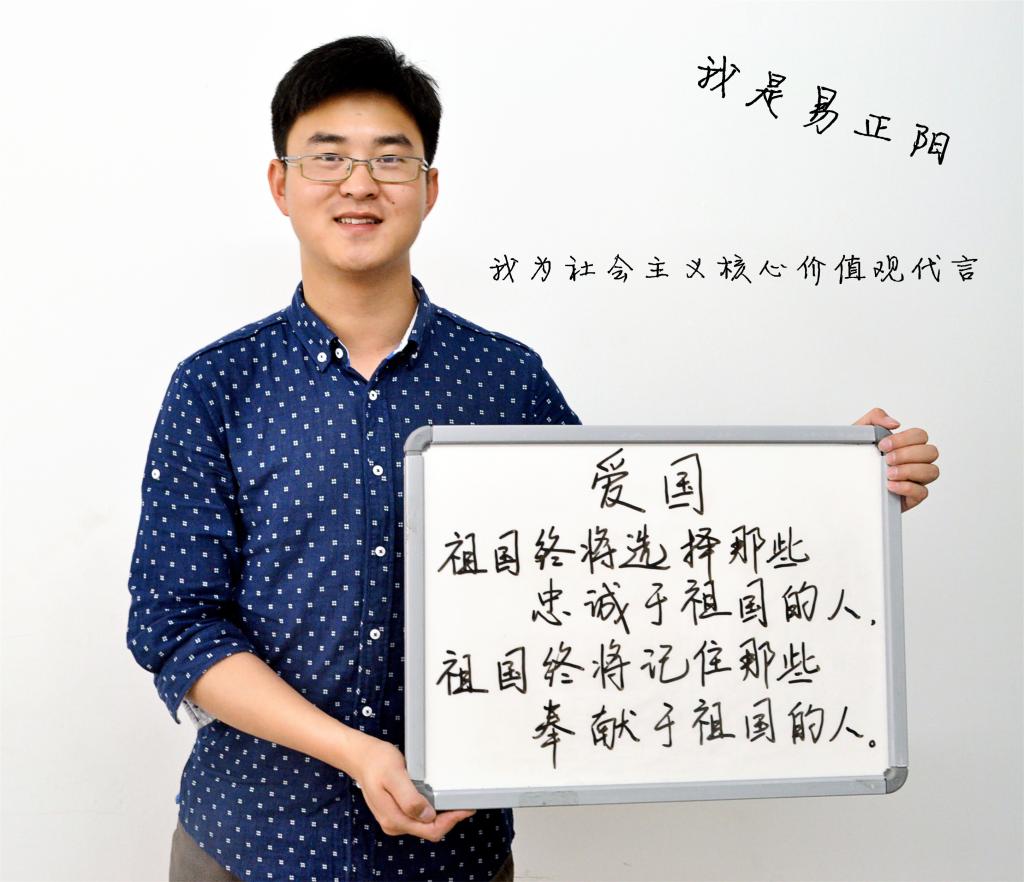 我是易正阳
我为社会主义核心价值观代言
爱国
祖国终将选择那些
忠诚于祖国的人,
祖国终将记住那些
奉献于祖国的人。